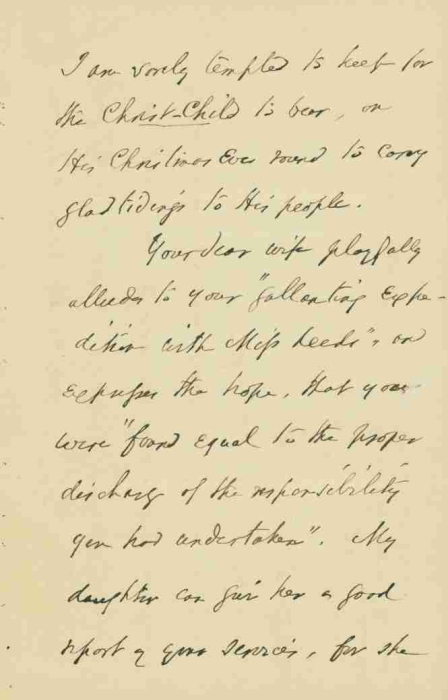 I am sorely tempted to keep for
the Christ-Child to bear, on
His Christmas Eve round to carry
glad tidings to His people.
Your dear wife playfully
alludes to your "gallanting Expe-
dition with Miss Leeds", and
expresses the hope, that you
were "found equal to the proper
discharge of the responsibility
you had undertaken". My
daughter can give her a good
report of your services, for she